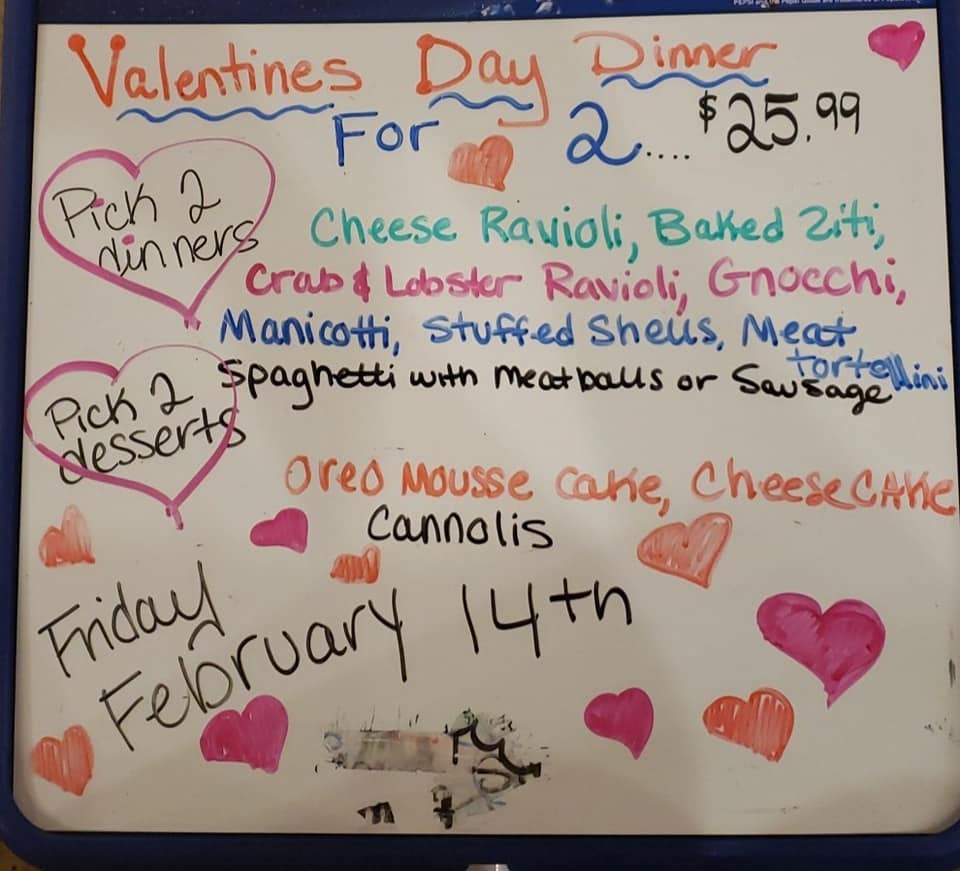 Valentines Day Dinner
For 2.... $25.99
Pick 2
dinners
Cheese Ravioli, Baked Ziti,
Crab & Lobster Ravioli, Gnocchi,
Manicotti, Stuffed Shells, Meat
Tortellini
Spaghetti with meatballs or Sausage
Pick 2
desserts
Oreo Mousse Cake, CheeseCAke
Cannolis
Friday
February 14th